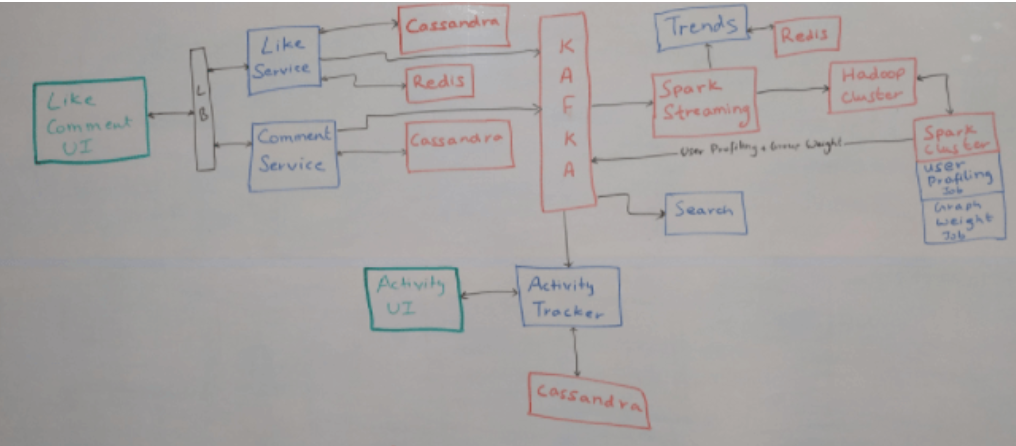 Like
Comment
UI
L
B
Like
Service
Cassandra
Redis
Comment
Service
Cassandra
K
A
F
K
A
Trends
Redis
Spark
Streaming
Hadoop
Cluster
Spark
Cluster
User
Profiling
Job
Graph
Weight
Job
User Profiling + Group Weight
Search
Activity
UI
Activity
Tracker
Cassandra